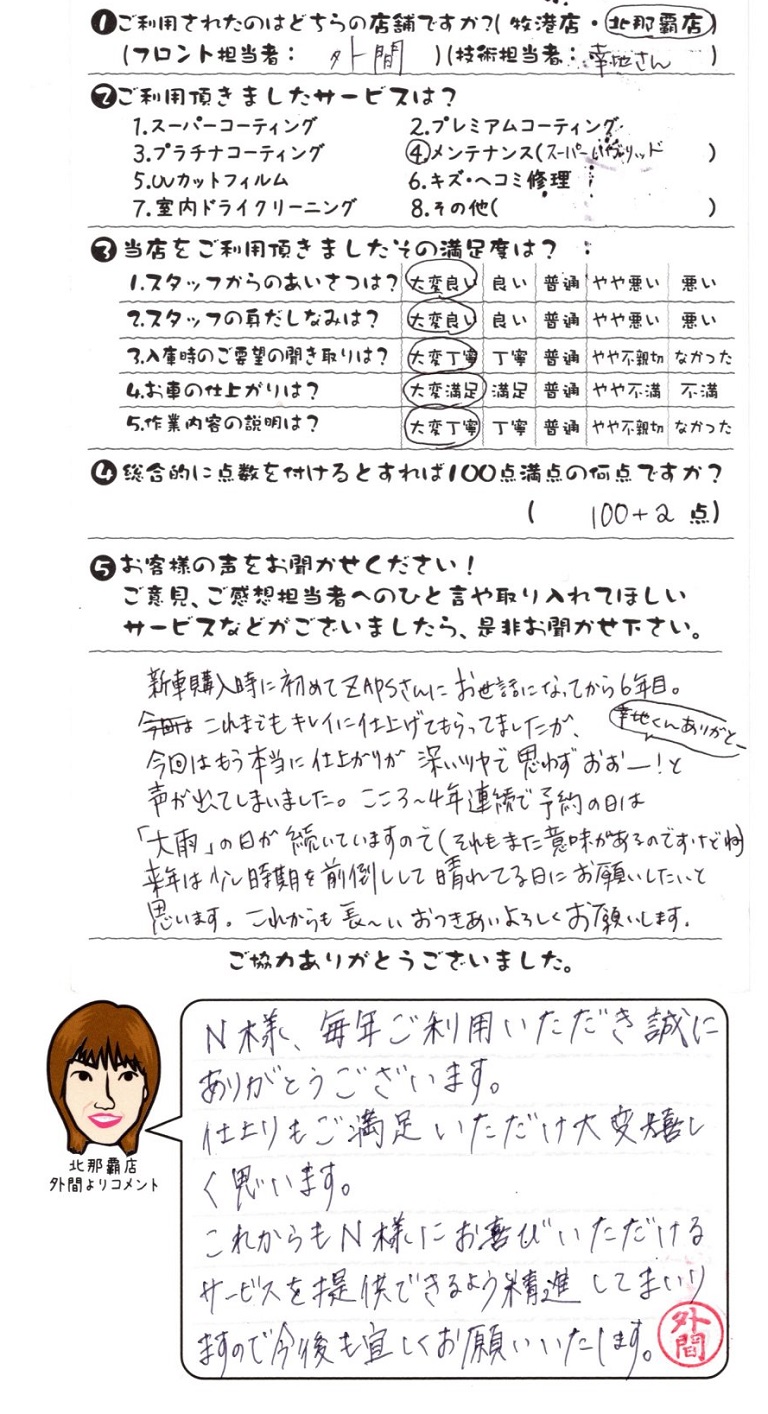 ❶ご利用されたのはどちらの店舗ですか?(牧港店・北那覇店)
(フロント担当者: 外間 )(技術担当者: 幸地さん )
❷ご利用頂きましたサービスは?
1.スーパーコーティング 2.プレミアムコーティング
3.プラチナコーティング ④.メンテナンス(スーパーハイブリッド )
5.UVカットフィルム 6.キズ・ヘコミ修理
7.室内ドライクリーニング 8.その他( )
❸当店をご利用頂きましたその満足度は?
1.スタッフからのあいさつは? 大変良い 良い 普通 やや悪い 悪い
2.スタッフの身だしなみは? 大変良い 良い 普通 やや悪い 悪い
3.入庫時のご要望の聞き取りは? 大変丁寧 丁寧 普通 やや不親切 なかった
4.お車の仕上がりは? 大変満足 満足 普通 やや不満 不満
5.作業内容の説明は? 大変丁寧 丁寧 普通 やや不親切 なかった
❹総合的に点数を付けるとすれば100点満点の何点ですか?
( 100+2 点)
❺お客様の声をお聞かせください!
ご意見、ご感想担当者へのひと言や取り入れてほしい
サービスなどがございましたら、是非お聞かせ下さい。
新車購入時に初めてZAPSさんにお世話になってから6年目。
今回は これまでもキレイに仕上げてもらってましたが、
幸地くんありがと〜
今回はもう本当に仕上がりが 深いツヤで思わずおぉー!と
声が出てしまいました。ここ3〜4年連続で予約の日は
「大雨」の日が続いていますので(それもまた意味があるのですけどね)
来年は少し時期を前倒しして晴れてる日にお願いしたいと
思います。これからも長〜いおつきあいよろしくお願いします.
ご協力ありがとうございました。
N様、毎年ご利用いただき誠に
ありがとうございます。
仕上りもご満足いただけ大変嬉し
く思います。
これからもN様にお喜びいただける
サービスを提供できるよう精進してまいり
ますので今後も宜しくお願いいたします。
外間
北那覇店
外間よりコメント